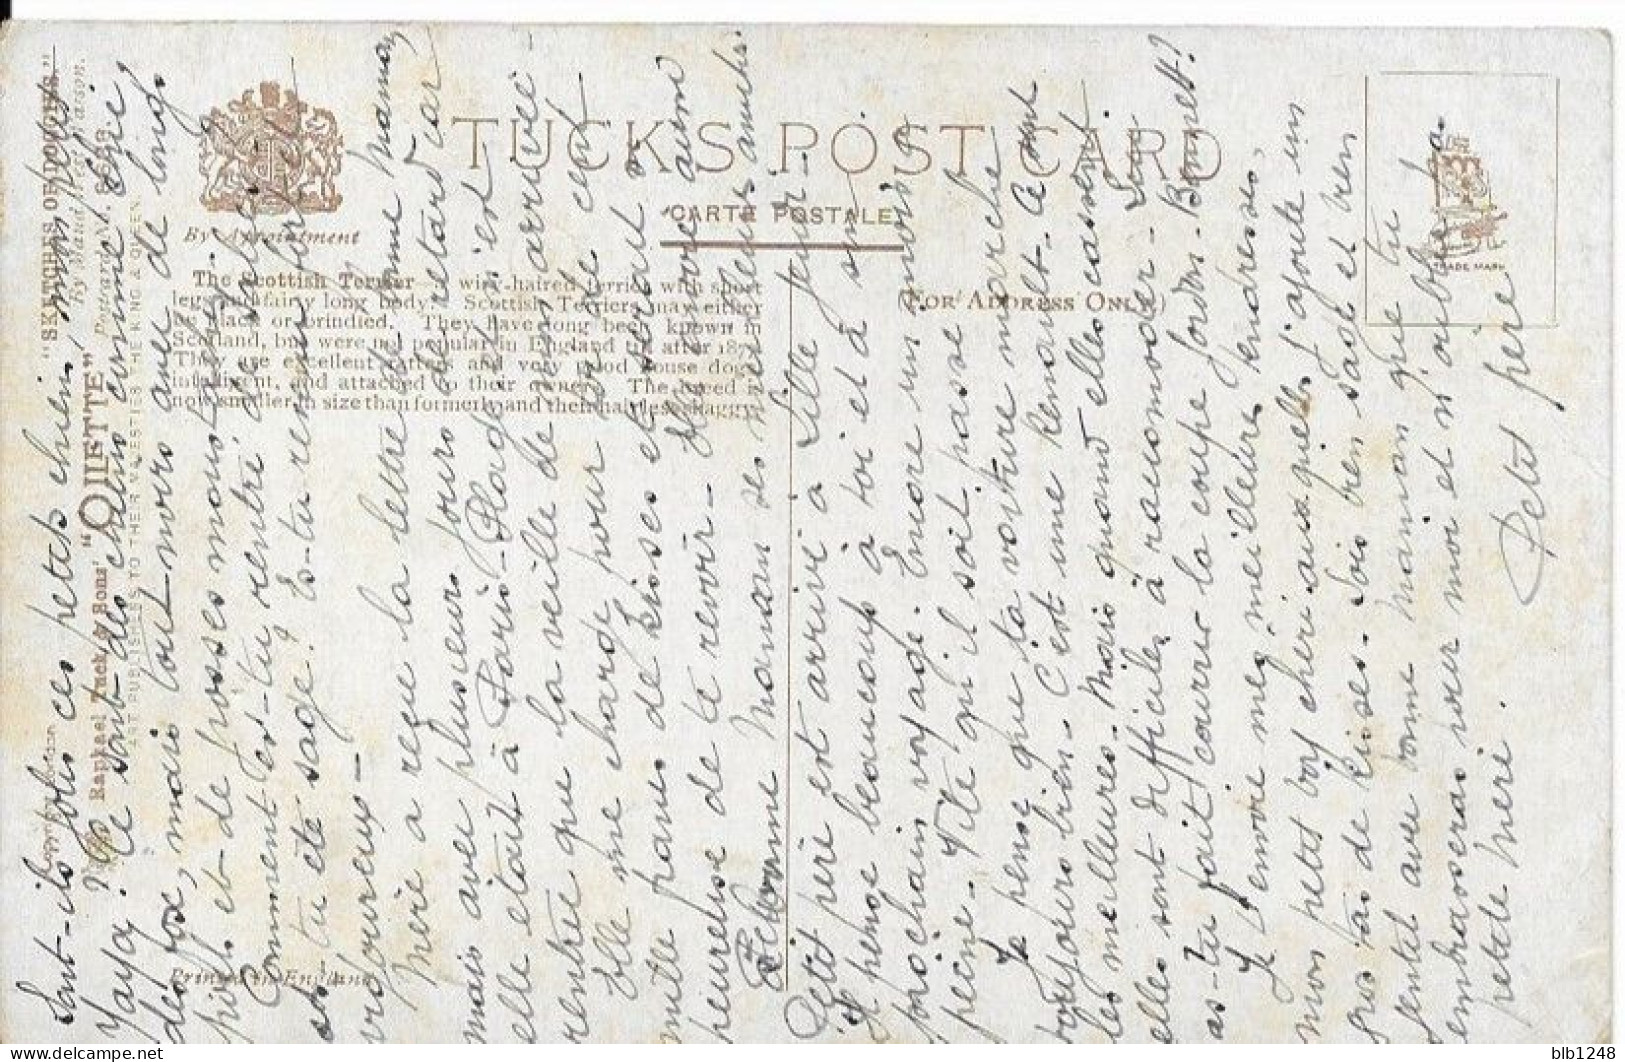 TUCK'S POST CARD
CARTE POSTALE
(FOR ADDRESS ONLY)
By Appointment
TRADE MARK
"SKETCHES OF DOGGIES."
By Maud West Watson.
Postcard No.
"QUIETTE"
Raphael Tuck & Sons'
ART PUBLISHERS TO THEIR MAJESTIES THE KING & QUEEN.
Printed in England
The Scottish Terrier wiry-haired terrier with short
legs and fairly long body. Scottish Terriers may either
be black or brindled. They have long been known in
Scotland, but were not popular in England till after
They are excellent and very good house dogs
intelligent, and attached to their owners. The breed is
now smaller in size than formerly and their hair less shaggy.
Sont-ils jolis ces petits chiens, mon petit
Yaya? Ce sont des chiens comme
mais tout-noirs avec de longs
poils et de grosses moustaches.
Comment es-tu rentré de
As tu été sage? Es-tu revenu bien
vigoureux -
Mère a reçu la lettre de bonne maman
mais avec plusieurs jours de retard car
elle était à Paris-Plage. Elle n'est
rentrée que la veille de mon arrivée -
Elle me charge pour toi de cent
mille pano de kisses et serait si
heureuse de te revoir -
maman des meilleures amitiés.
Petit père est arrivé à Lille
Il pense beaucoup à toi et à son
prochain voyage. Encore un mois à
peine - Vite qu'il soit passé
Je pense que ta voiture marche
toujours bien - C'est une Renault - Ce sont
les meilleures. Mais quand elles cassent
elles sont difficiles à raccomoder -
as-tu fait courir la coupe Gordon-Bennett?
Je t'envoie mes meilleures tendresses,
mon petit boy chéri auxquelles j'ajoute un
gros tas de kisses - Sois bien sage et bien
gentil avec bonne maman que tu
embrasseras pour moi et n'oublie pas
petite mère.
Petit père
blb1248